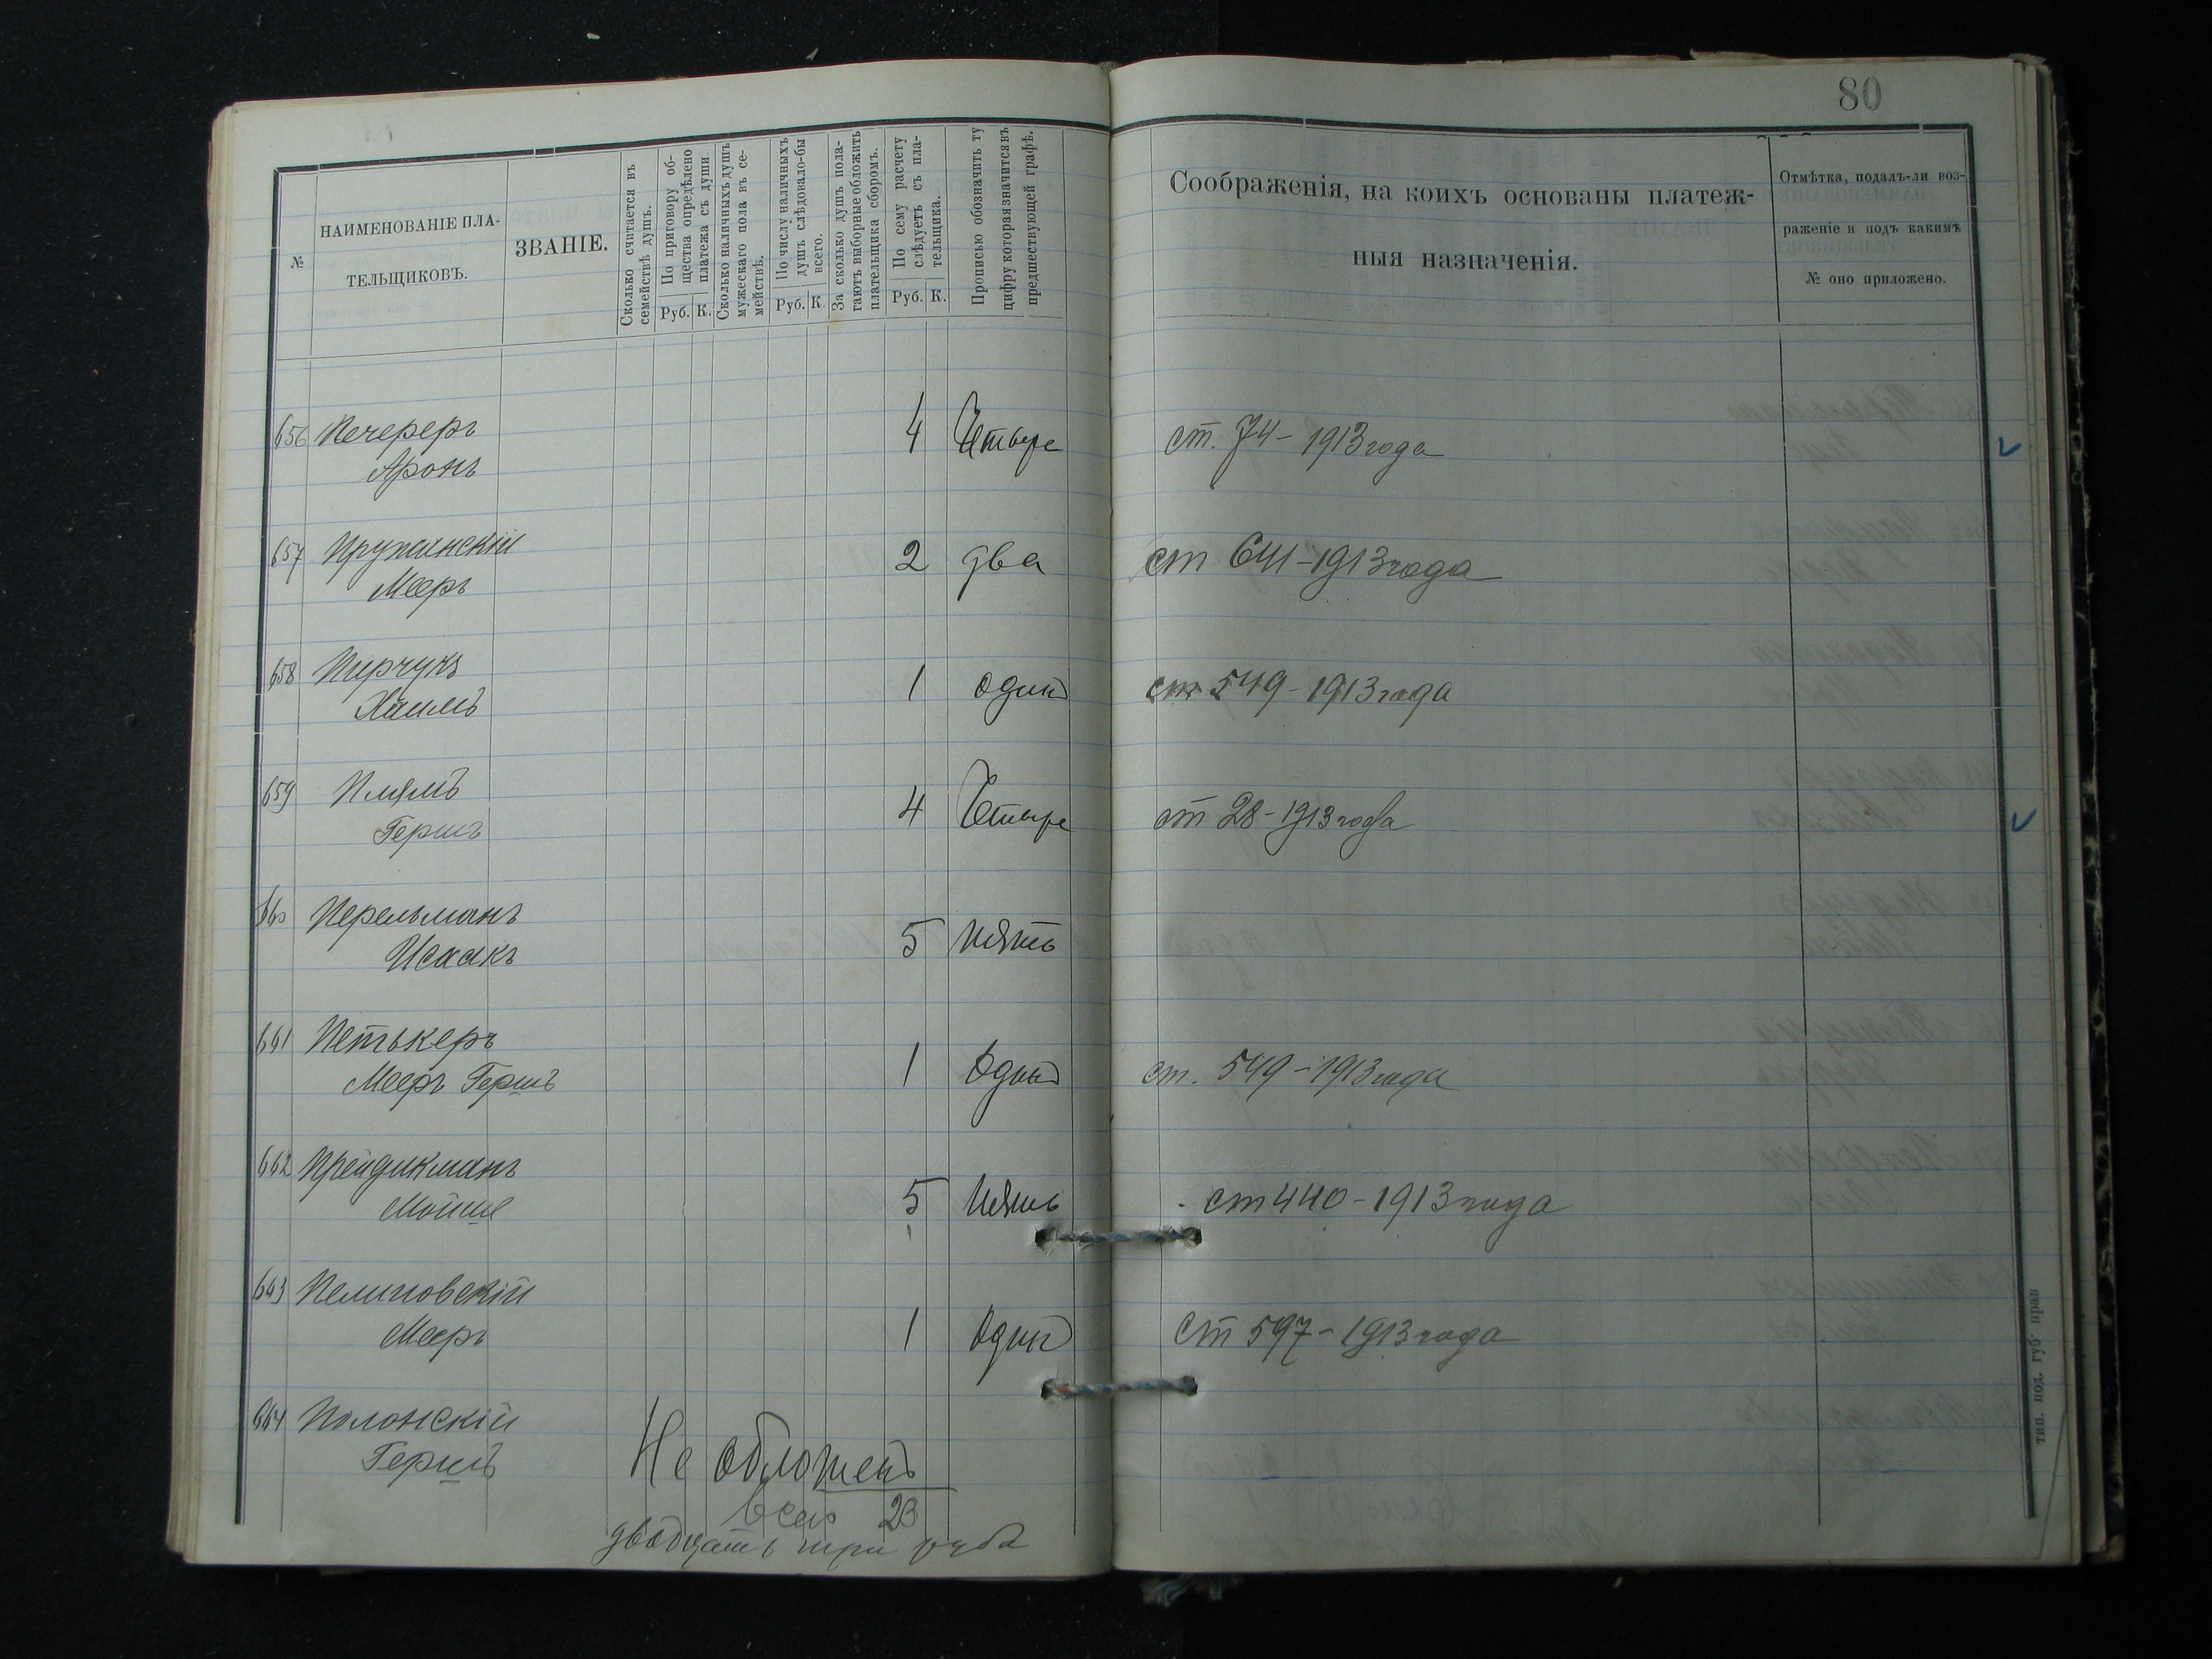 80
№
НАИМЕНОВАНІЕ ПЛА-
ТЕЛЬЩИКОВЪ.
ЗВАНІЕ.
Сколько считается въ
семействѣ душъ.
По приговору об-
щества опредѣлено
платежа съ души.
Руб. К.
Сколько наличныхъ душъ
мужескаго пола въ се-
мействѣ.
По числу наличныхъ
душъ слѣдовало-бы
всего.
Руб. К.
За сколько душъ пола-
гаютъ выборные обложить
плательщика сборомъ.
По сему расчету
слѣдуетъ съ пла-
тельщика.
Руб. К.
Прописью обозначить ту
цифру которая значится въ
предшествующей графѣ.
Соображенія, на коихъ основаны платеж-
ныя назначенія.
Отмѣтка, подалъ-ли воз-
раженіе и подъ какимъ
№ оно приложено.
656 Печереръ 4 Четыре ст. 74 - 1913 года
Аронъ
657 Пружанскій 2 два ст 641 - 1913 года
Мееръ
658 Пирчукъ 1 один ст 549 - 1913 года
Хаимъ
659 4 Четыре ст 28 - 1913 года
Гершъ
660 Перельманъ 5 Пять
Исаакъ
661 Петькеръ 1 Один ст. 549 - 1913 года
Мееръ Гершъ
662 Прейдикманъ 5 Пять ст 440 - 1913 года
Мойше
663 1 Один Ст 597 - 1913 года
Мееръ
664 Полонскій
Гершъ
Не обложенъ
всего 23
двадцать три руб
тип. под. губ. прав